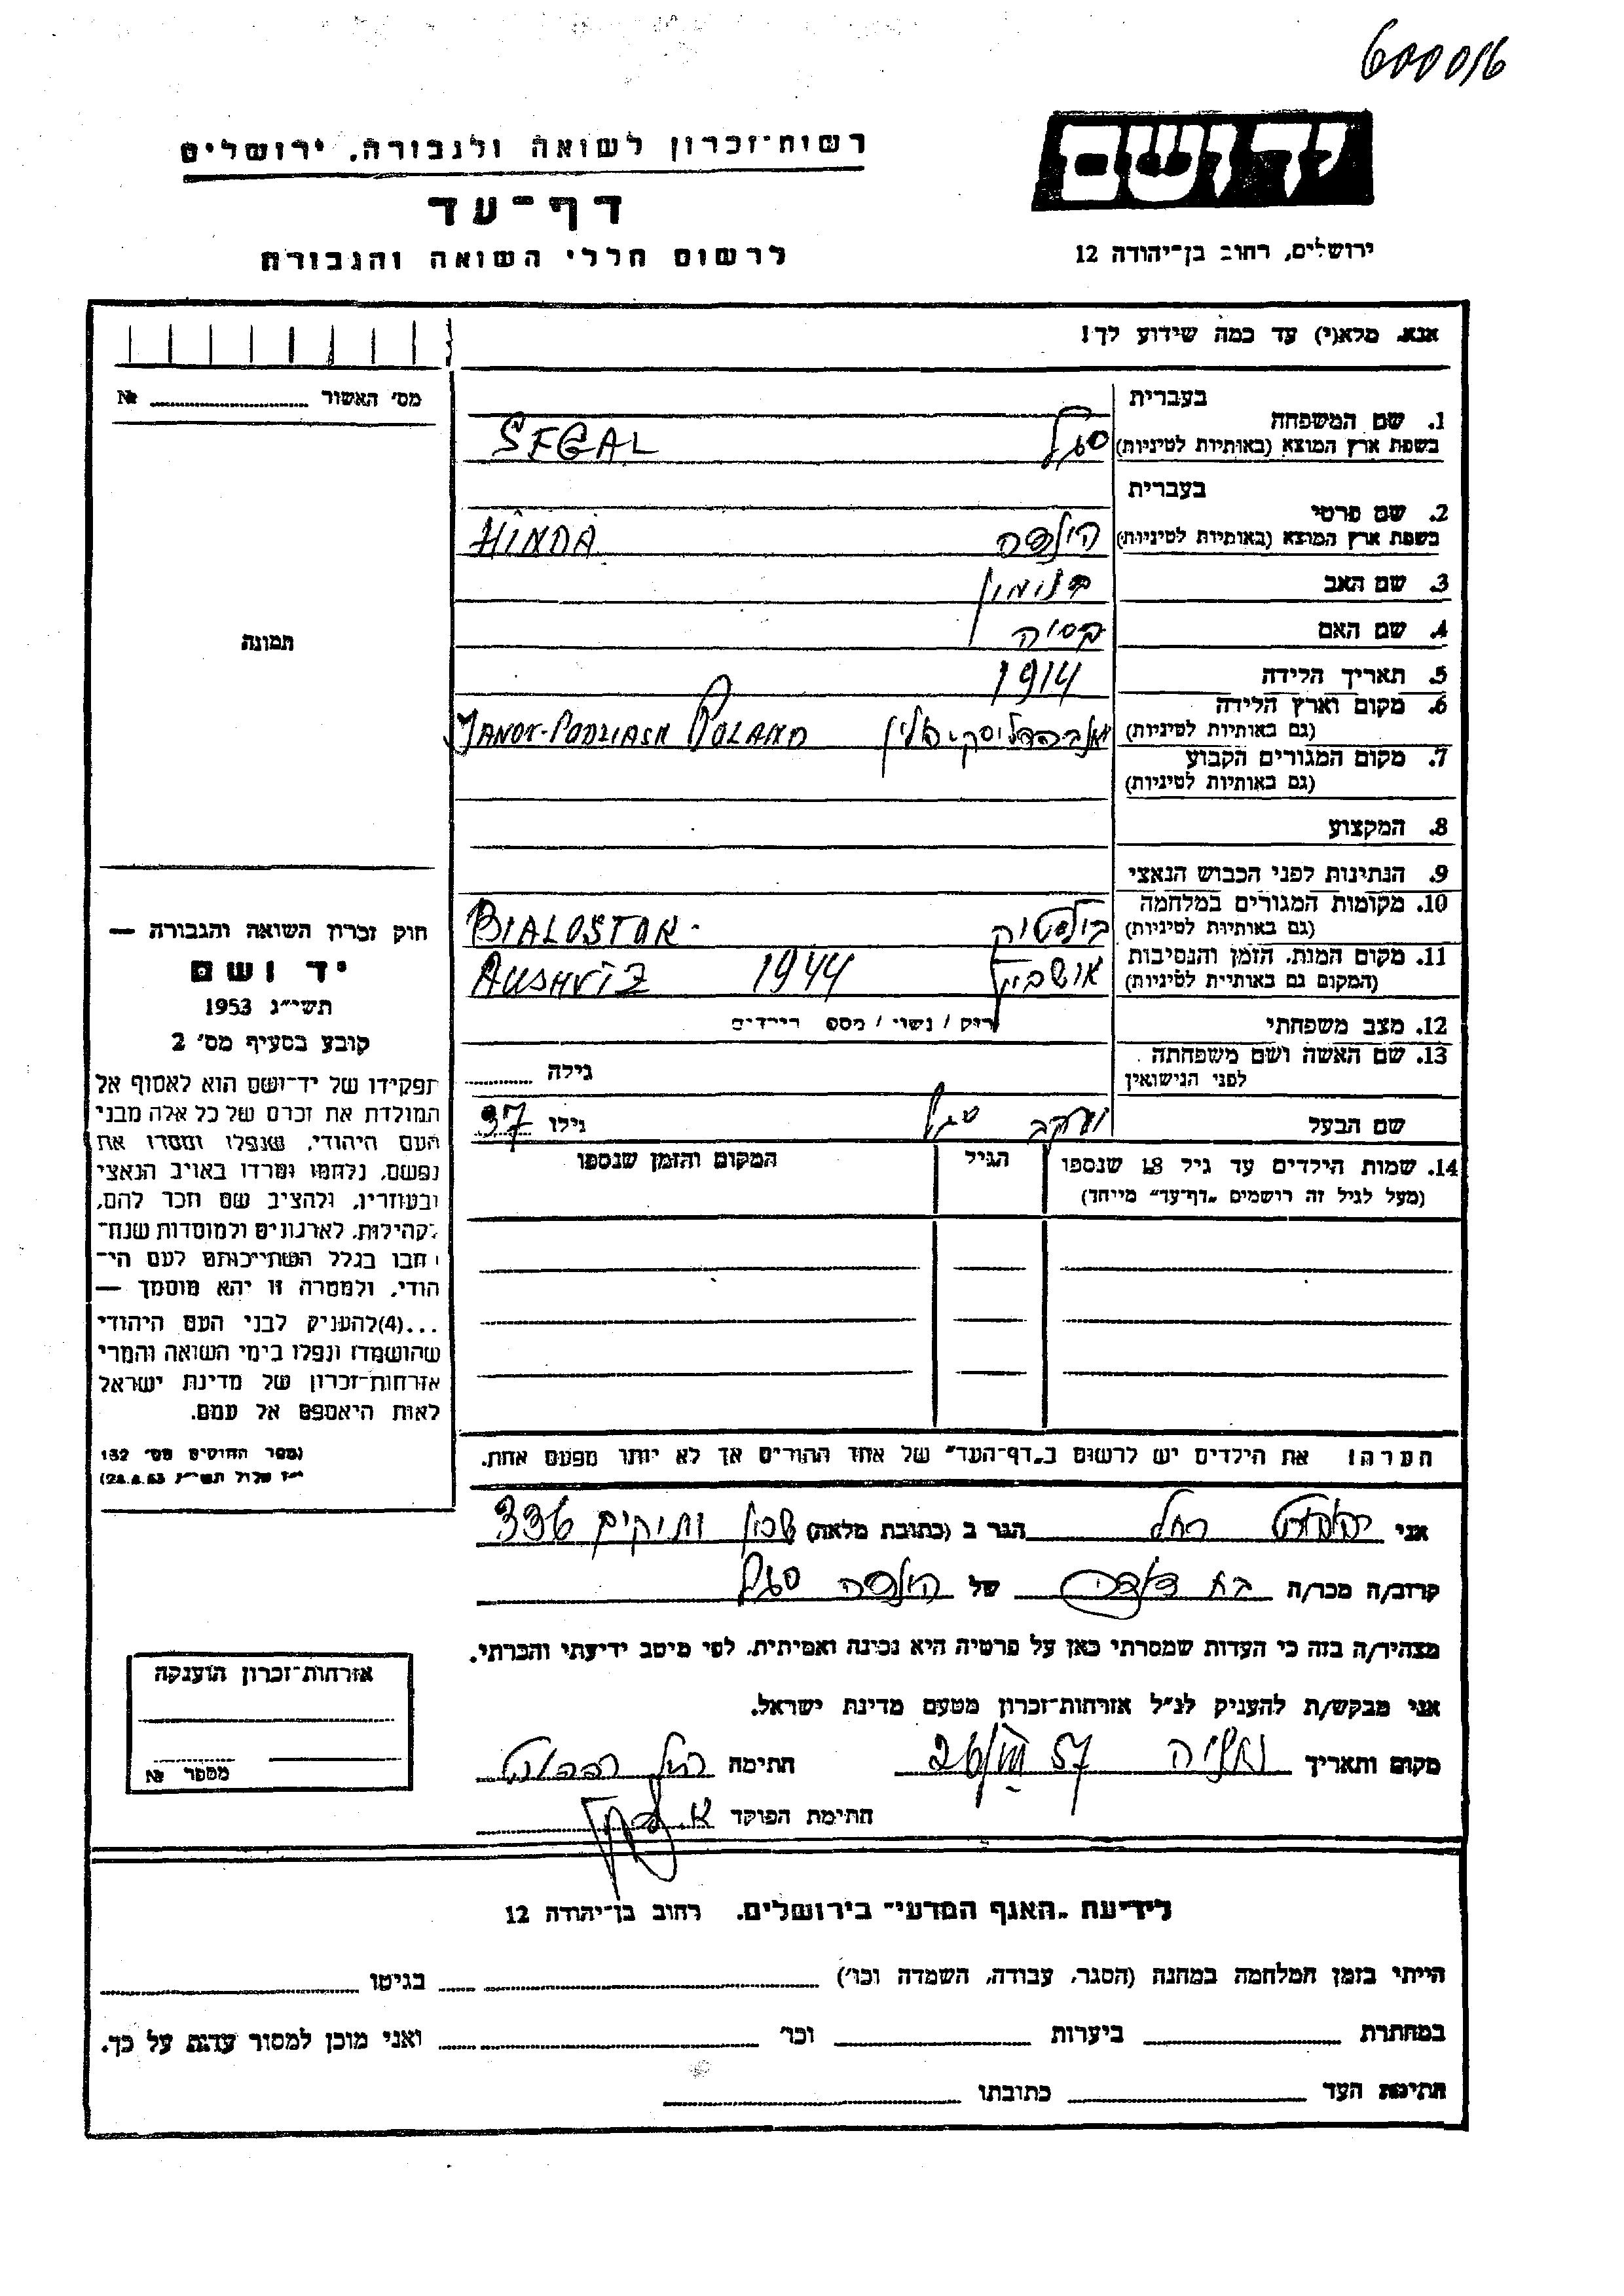 600016
יד ושם
רשות־זכרון לשואה ולגבורה, ירושלים
דף־עד
לרשום חללי השואה והגבורה
ירושלים, רחוב בן־יהודה 12
אנא, מלא(י) עד כמה שידוע לך!
מס' האשור № ............
תמונה
חוק זכרון השואה והגבורה —
יד ושם
תשי״ג 1953
קובע בסעיף מס' 2
תפקידו של יד־ושם הוא לאסוף אל
המולדת את זכרם של כל אלה מבני
העם היהודי, שנפלו ומסרו את
נפשם, נלחמו ומרדו באויב הנאצי
ובעוזריו, ולהציב שם וזכר להם,
לקהילות, לארגונים ולמוסדות שנח־
רבו בגלל השתייכותם לעם הי־
הודי, ולמטרה זו יהא מוסמך —
...(4)להעניק לבני העם היהודי
שהושמדו ונפלו בימי השואה והמרי
אזרחות־זכרון של מדינת ישראל
לאות היאספם אל עמם.
(ספר החוקים מס' 132
י״ז אלול תשי״ג 28.8.53)
בעברית
1. שם המשפחה
בשפת ארץ המוצא (באותיות לטיניות) סגל SEGAL
בעברית
2. שם פרטי
בשפת ארץ המוצא (באותיות לטיניות) הינדה HINDA
3. שם האב בנימין
4. שם האם בסיה
5. תאריך הלידה 1914
6. מקום וארץ הלידה
(גם באותיות לטיניות) פולין JANOV-PODLIASK POLAND
7. מקום המגורים הקבוע
(גם באותיות לטיניות)
8. המקצוע
9. הנתינות לפני הכבוש הנאצי
10. מקומות המגורים במלחמה
(גם באותיות לטיניות) ביאלסטוק BIALOSTOK.
11. מקום המות, הזמן והנסיבות
(המקום גם באותיות לטיניות) אושביץ 1944 AUSHVIZ
12. מצב משפחתי רוק / נשוי / מספ הילדים
13. שם האשה ושם משפחתה
לפני הנישואין גילה ........
שם הבעל יעקב סגל גילו 37
14. שמות הילדים עד גיל 18 שנספו הגיל המקום והזמן שנספו
(מעל לגיל זה רושמים „דף־עד״ מיוחד)
הערה! את הילדים יש לרשום ב„דף־העד״ של אחד ההורים אך לא יותר מפעם אחת.
אני רחל הגר ב (כתובת מלאה) שכון ותיקים 336
קרוב/ה מכר/ה בת דודה של הינדה סגל
מצהיר/ה בזה כי העדות שמסרתי כאן על פרטיה היא נכונה ואמיתית, לפי מיטב ידיעתי והכרתי.
אני מבקש/ת להעניק לנ״ל אזרחות־זכרון מטעם מדינת ישראל.
מקום ותאריך נתניה 57 חתימה רחל
חתימת הפוקד
אזרחות־זכרון הוענקה
מספר №
לידיעת „האגף המדעי״ בירושלים, רחוב בן־יהודה 12
הייתי בזמן המלחמה במחנה (הסגר, עבודה, השמדה וכו') ............ בגיטו ............
במחתרת ............ ביערות ............ וכו' ............ ואני מוכן למסור עדות על כך.
חתימת העד ............ כתובתו ............